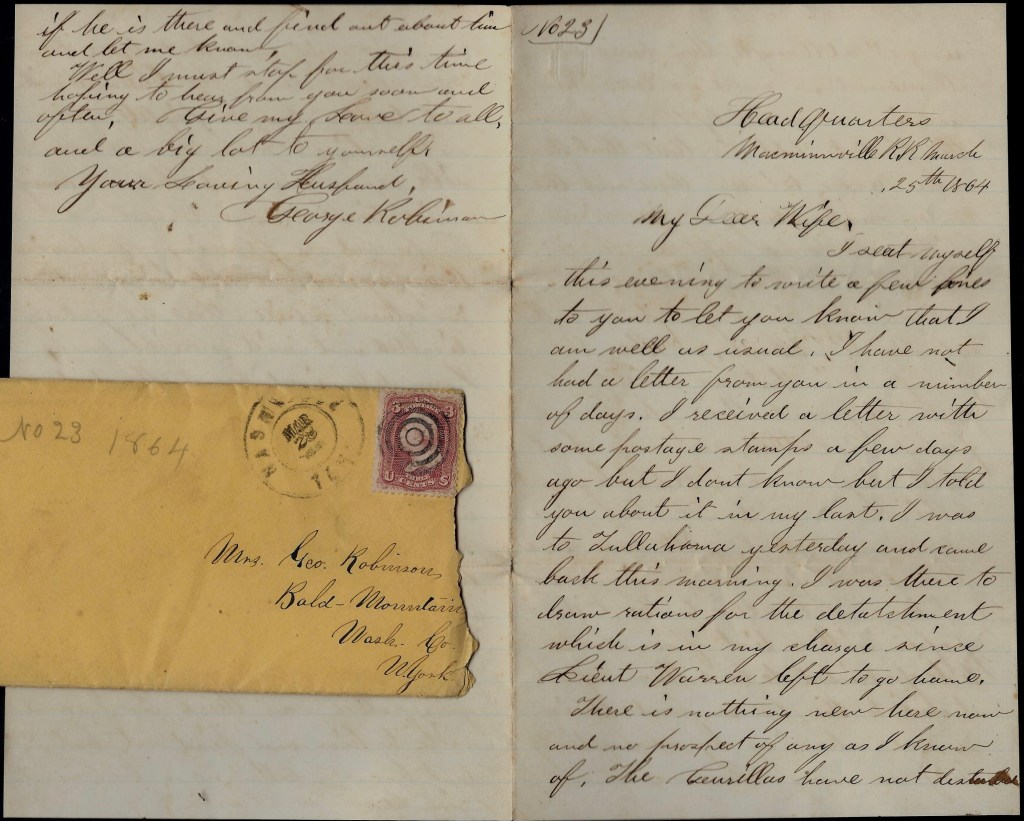 if he is there and find out about him
and let me know,
Well I must stop for this time
hoping to hear from you soon and
often, Give my Love to all,
and a big lot to yourself
Your Loving Husband,
George Robinson
No 23
Head Quarters
Macminnville RR March
25th 1864
My Dear Wife,
I seat myself
this evening to write a few lines
to you to let you know that I
am well as usual, I have not
had a letter from you in a number
of days. I received a letter with
some postage stamps a few days
ago but I dont know but I told
you about it in my last. I was
to Tullahama yesterday and came
back this morning. I was there to
draw rations for the detatchment
which is in my charge since
Lieut Warren left to go home.
There is nothing new here now
and no prospect of any as I know
of, The Gaurillas have not
No 23 1864
NASHVILLE
TEN
MAR
28
3 U.S. 3
POSTAGE
U S
CENTS
Mrs. Geo. Robinson,
Bald-Mountain
Wash. Co.
N.York